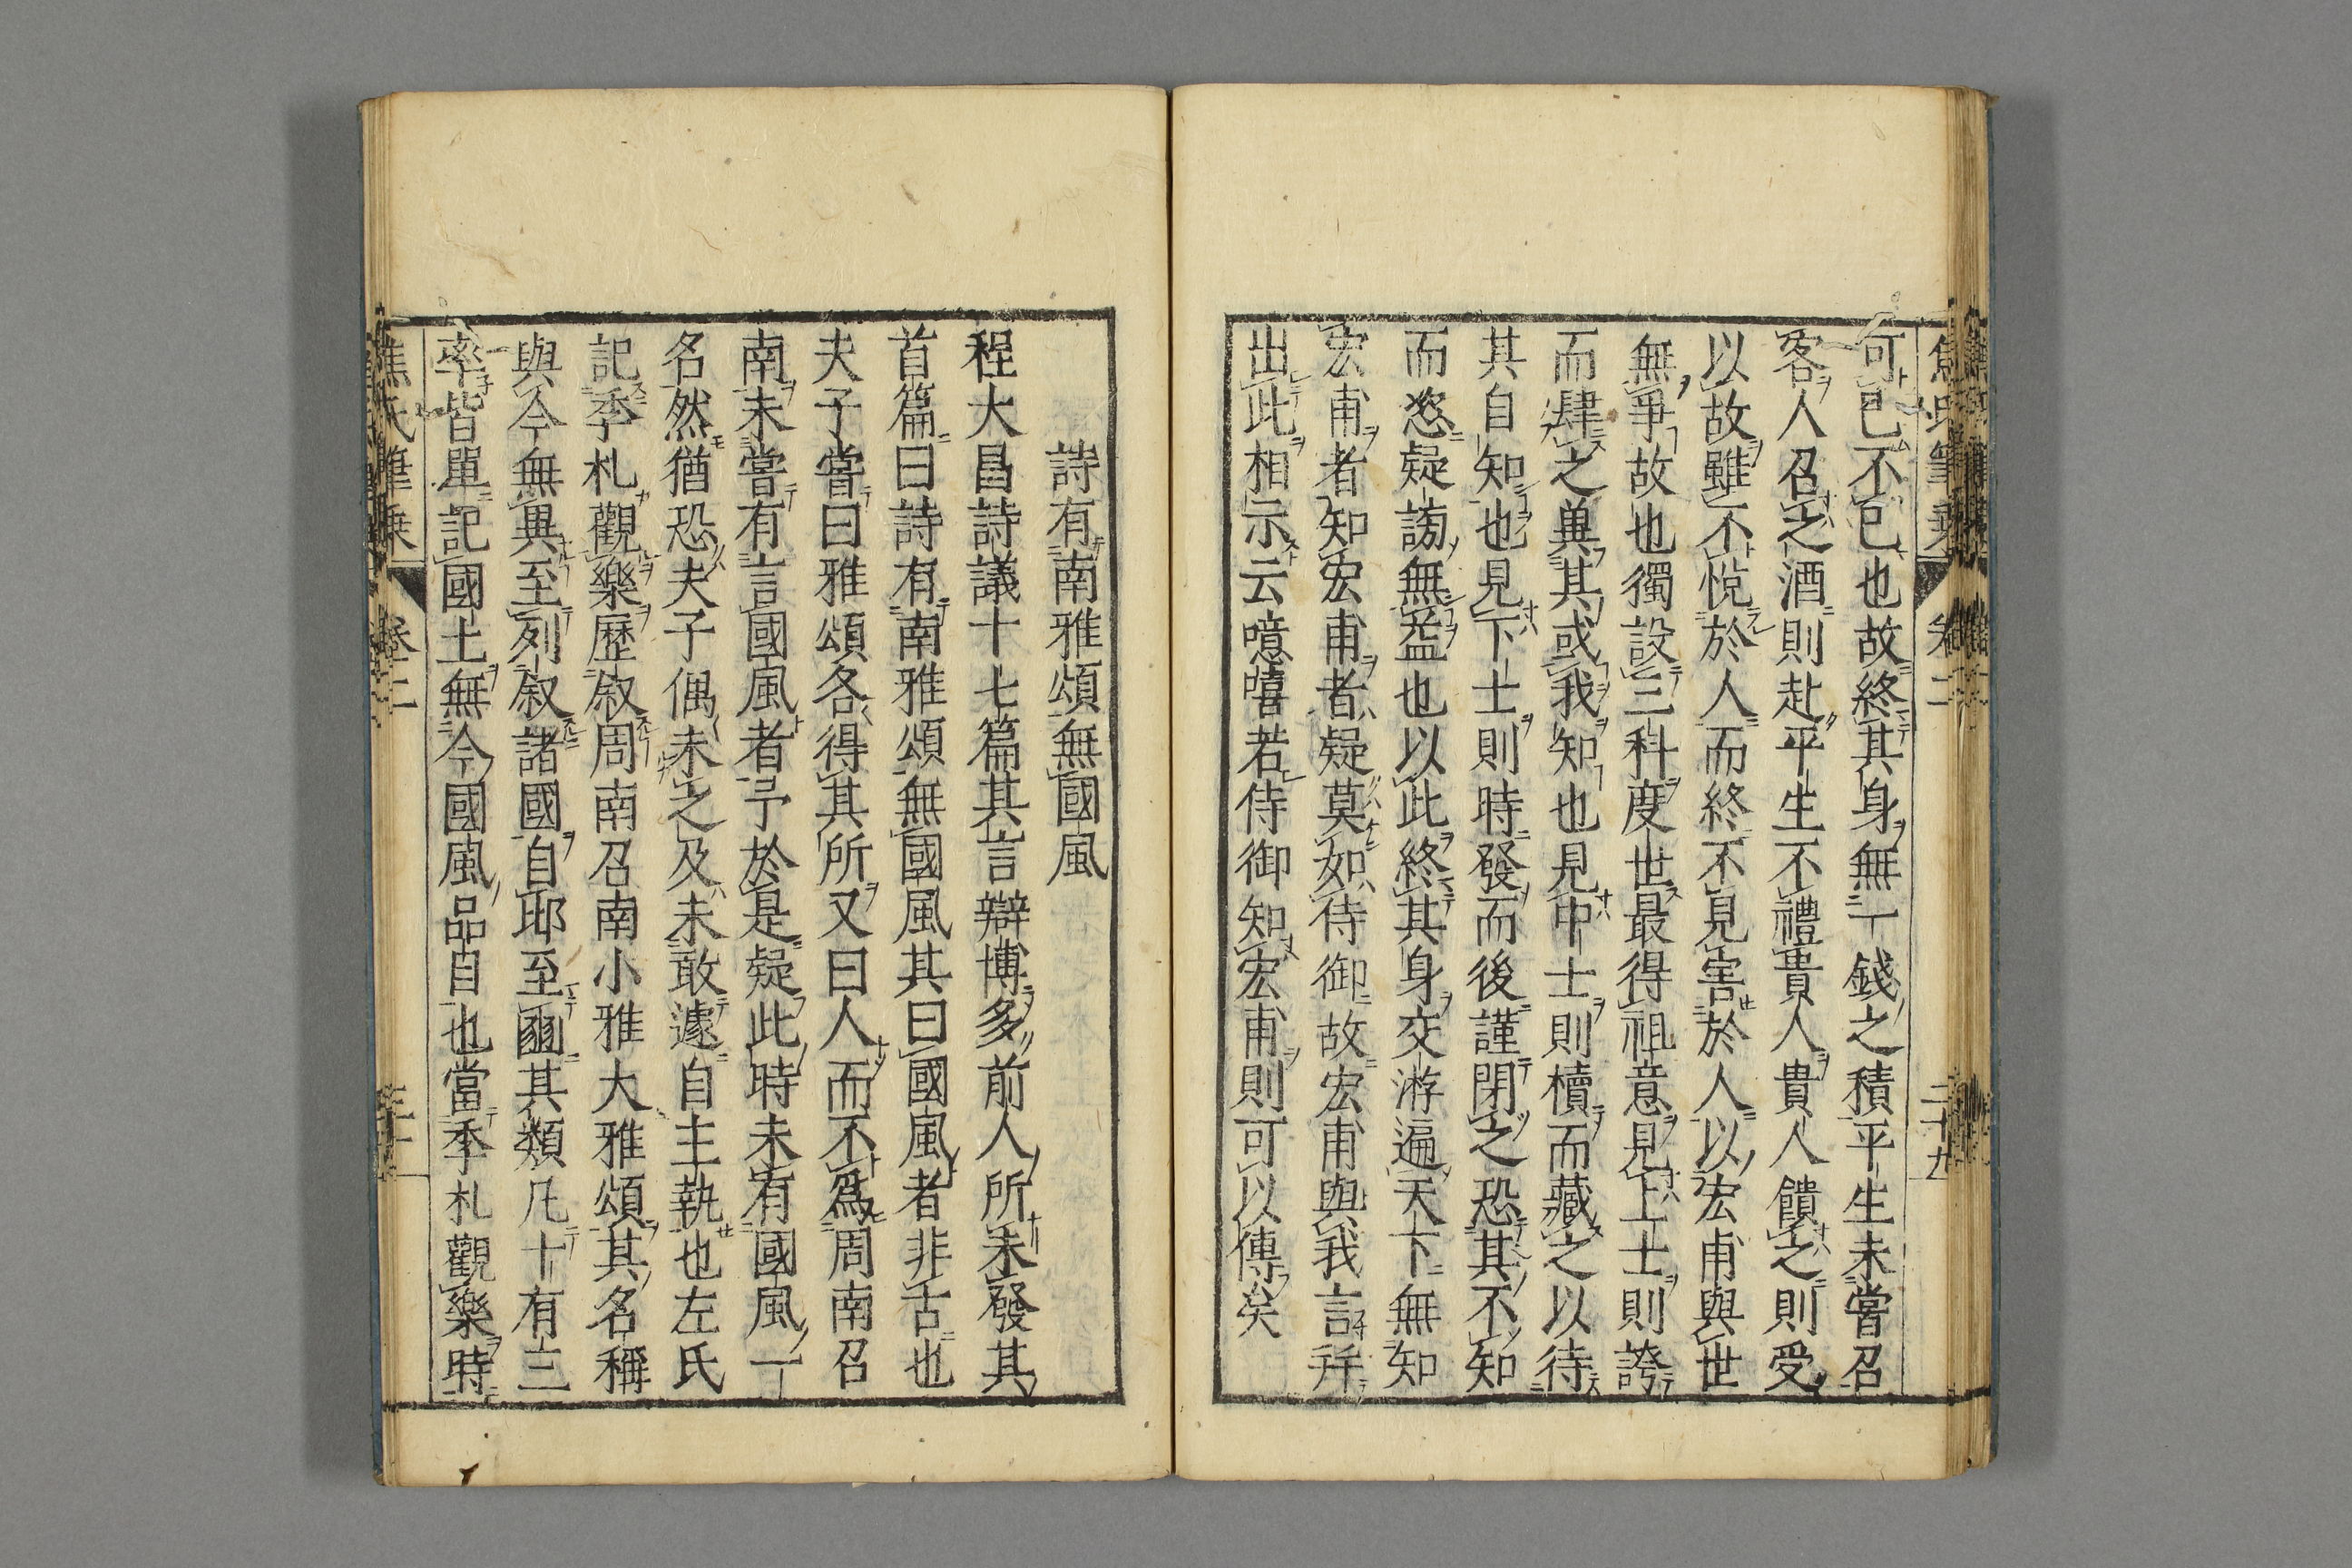 焦氏筆乗 卷二 二十九
可已不已也故終其身無一錢之積平生未嘗召
客人召之酒則赴平生不禮貴人貴人饋之則受
以故雖不悅於人而終不見害於人以宏甫與世
無爭故也獨設三科度世最得祖意見上士則誇
而肆之兾其或我知也見中士則櫝而藏之以待
其自知也見下士則時發而後謹閉之恐其不知
而慾疑謗無益也以此終其身交游遍天下無知
宏甫者知宏甫者疑莫如待御故宏甫與我言拜
出此相示云噫嘻若侍御知宏甫則可以傳矣
詩有南雅頌無國風
程大昌詩議十七篇其言辯博多前人所未發其
首篇曰詩有南雅頌無國風其曰國風者非古也
夫子嘗曰雅頌各得其所又曰人而不爲周南召
南未嘗有言國風者予於是疑此時未有國風一
名然猶恐夫子偶未之及未敢遽自主執也左氏
記季札觀樂歷叙周南召南小雅大雅頌其名稱
與今無異至列叙諸國自邶至豳其類凡十有三
率皆單記國土無今國風品目也當季札觀樂時
焦氏筆乗 卷二 三十